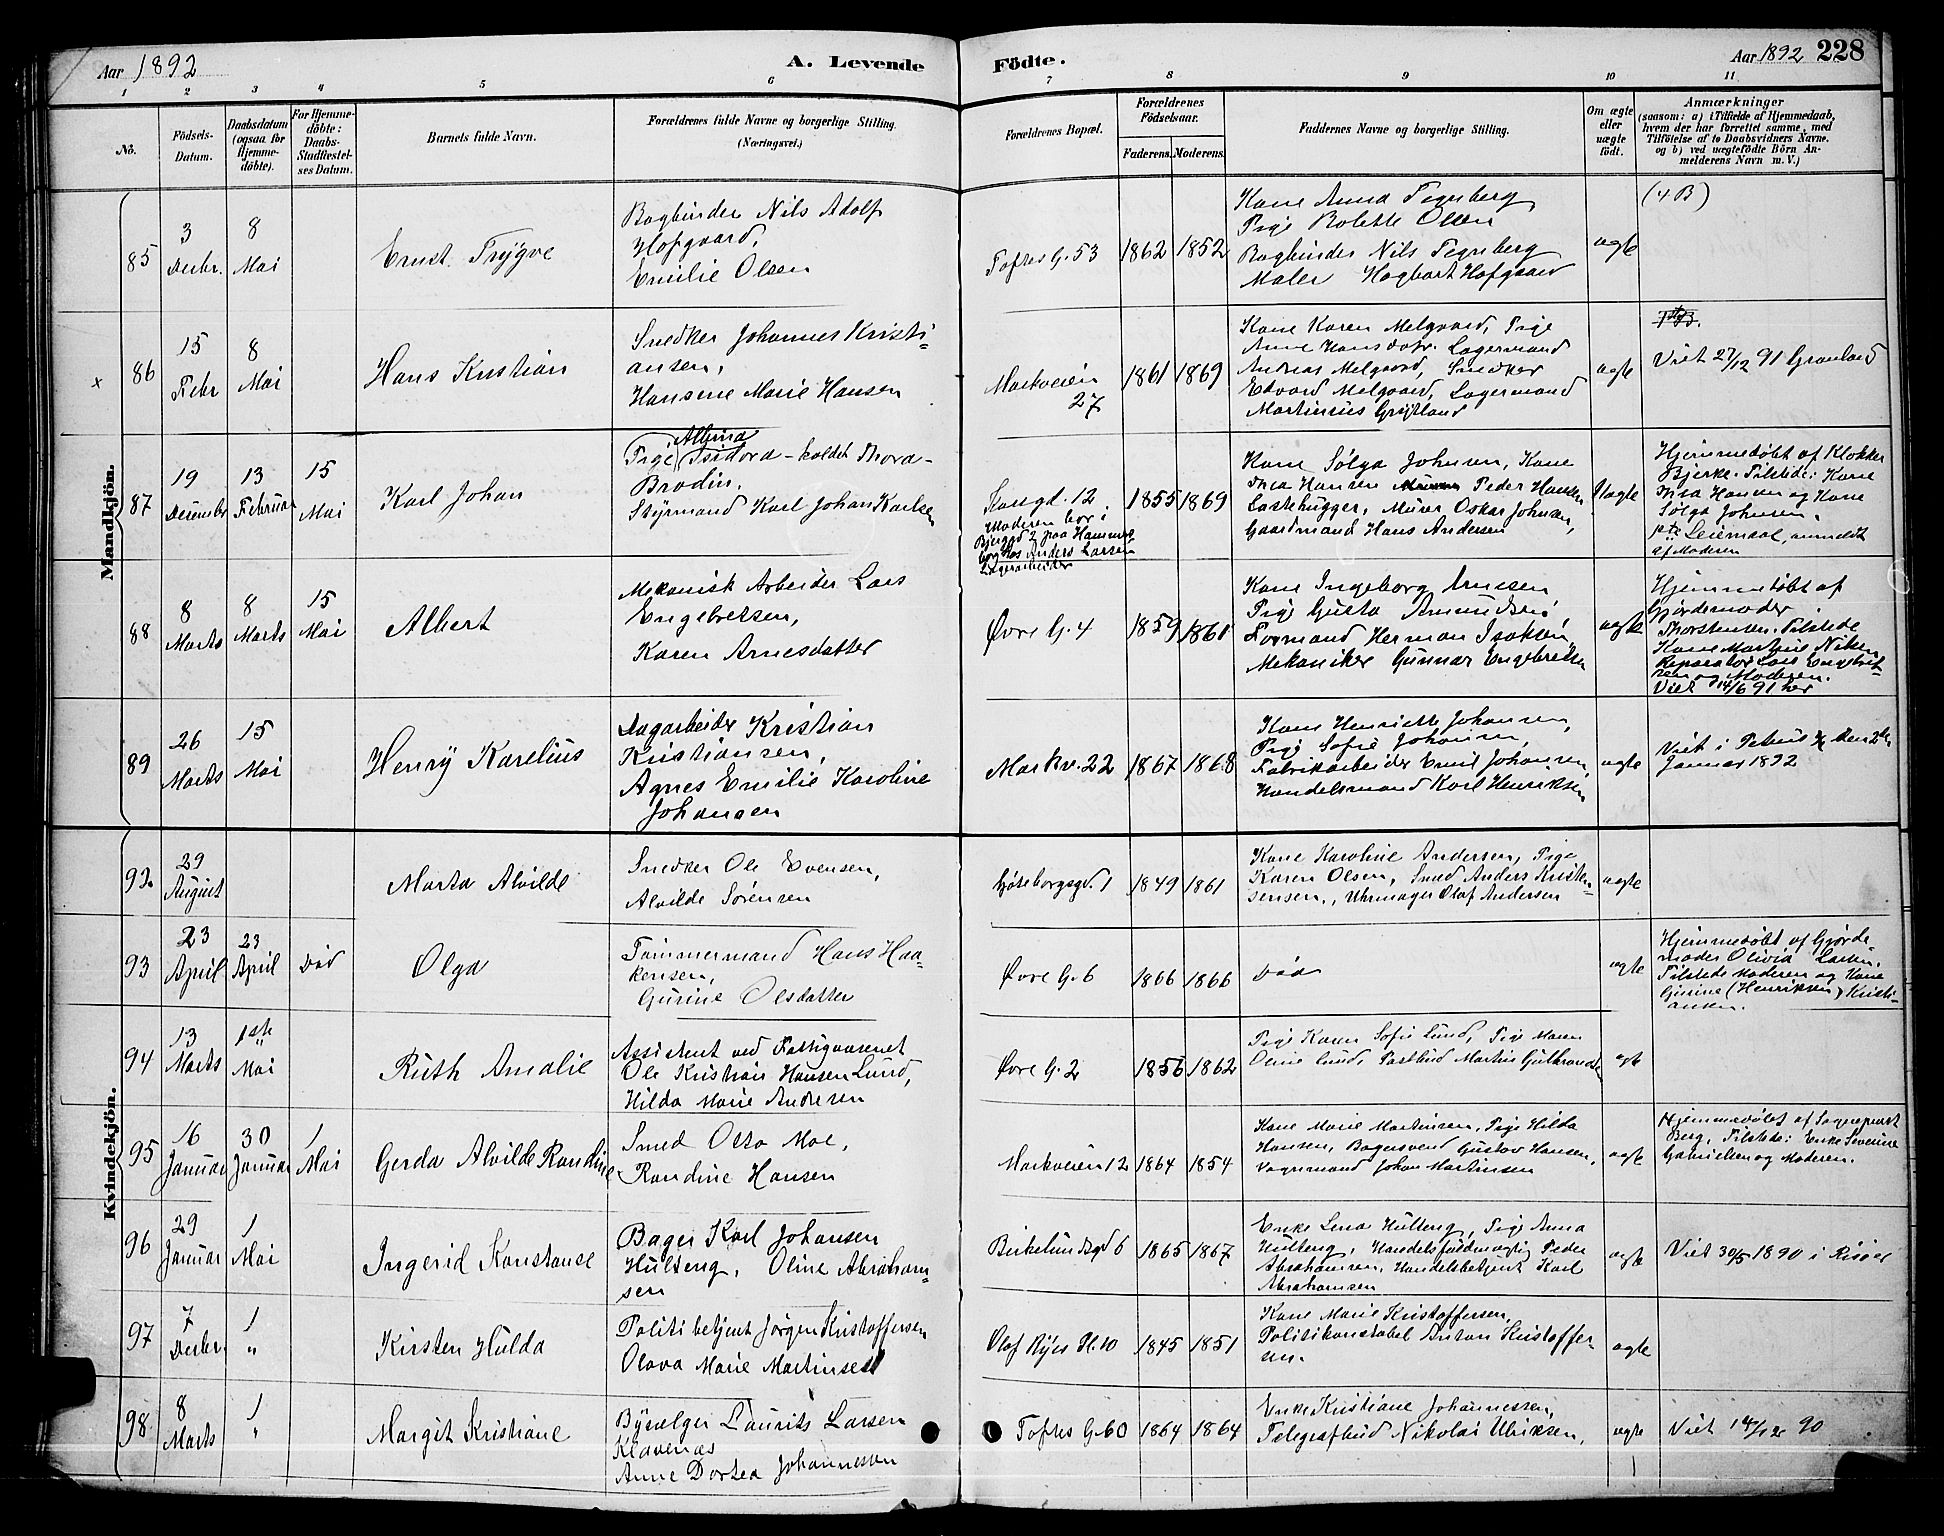 Aar 1892
A. Levende
Födte.
Aar 1892
228
1 2 3 4 5 6 7 8 9 10 11
No.
Födsels-Datum.
Daabsdatum (ogsaa for Hjemme-döbte).
For Hjemme-döbte: Daabs-Stadfæstel-ses Datum.
Barnets fulde Navn.
Forældrenes fulde Navne og borgerlige Stilling.
(Næringsvei.)
Forældrenes Bopæl.
Forældrenes Födselsaar.
Faderens. Moderens.
Faddernes Navne og borgerlige Stilling.
Om ægte eller uægte født.
Anmærkninger
(saasom: a) i Tilfælde af Hjemmedaab,
hvem der har forrettet samme, med
Tilföielse af to Daabsvidners Navne.
og b) ved uægtefödte Börn An-
melderens Navn m. V.)
Mandkjön.
85
3 Decbr.
8 Mai
Ernst Trÿgve
Bogbinder Nils Adolf
Hofgaard,
Emilie Olsen
Toftes G. 53
1862 1852
Kone Anna Tegnberg
Pige Bolette Olsen
Bogbinder Nils Tegnberg
Maler Hagbart Hofgaard
ægte
(4 B)
x
86
15 Febr
8 Mai
Hans Kristian
Snedker Johannes Kristi-
ansen,
Hansine Marie Hansen
Markveien
27
1861 1869
Kone Karen Melgaard, Pige
Anne Hansdatr. Lagermand
Andreas Melgaard, Snedker
Edvard Melgaard, Lagermand
Martinius
ægte
Viet 27/12 91 Grønland
87
19 December
13 Februar
15 Mai
Karl Johan
Albina
Pige Isidora - kaldet Thora -
Brodin.
Styrmand Karl Johan Karlsen
12
Moderen bor i
2 paa Hammers
borg hos Anders Larsen
Lagerarbeider
1855 1869
Kone Sølga Johnsen, Kone
Thea Hansen Peder Hansen
Murer Oskar Johnsen,
Gaardmand Hans Andersen
Uægte
Hjemmedøbt af Klokker
Bjerke. Tilstede: Kone
Thea Hansen og Kone
Sølga Johnsen.
anmeldt
af Moderen
88
8 Marts
8 Marts
15 Mai
Albert
Mekanisk Arbeider Lars
Engebretsen,
Karen Arnesdatter
Øvre G. 4
1859 1861
Kone Ingeborg Arnesen,
Pige Gusta Amundsen,
Formand Herman Isaksen,
Mekaniker Gunnar Engebretsen
ægte
Hjemmedøbt af
Gjordemoder
Thorstensen. Tilstede
Kone Martine Nilsen
Reparatør Lars Engebret-
sen og Moderen.
Viet 14/6 91 her
89
26 Marts
15 Mai
Henrÿ Karelius
Dagarbeider Kristian
Kristiansen,
Agnes Emilie Karoline
Johansen
Markv. 22
1867 1868
Kone Henriette Johansen,
Pige Sofie Johansen,
Fabrikarbeider Emil Johansen,
Handelsmand Karl Henriksen
ægte
Viet i Petrus K den 2den
Januar 1892
Kvindekjön.
92.
29 August
Marta Alvilde
Snedker Ole Evensen,
Alvilde Sørensen
Gøteborgsgd. 1
1849 1861
Kone Karoline Andersen, Pige
Karen Olsen, Smed Anders Kristen-
sensen., Uhrmager Olaf Andersen
ægte
93
23 April
23 April
Død
Olga
Tømmermand Hans Haa-
kensen,
Gusine Olsdatter
Øvre G. 6
1866 1866
Død
ægte
Hjemmedøbt af Gjorde-
moder Olivia Larsen.
Tilstede Moderen og Kone
Gusine (Henriksen) Kristi-
ansen.
94
13 Marts
1ste Mai
Ruth Amalie
Assistent ved Fattigvæsenet
Ole Kristian Hansen Lund,
Hilda Marie Andersen
Øvre G. 2
1856 1862
Pige Karen Sofie Lund, Pige Maren
Oline Lund, Postbud Martin Gulbrandsen
ægte
95
16 Januar
30 Januar
1 Mai
Gerda Alvilde Randine
Smed Otto Moe,
Randine Hansen
Markveien 12
1864 1854
Kone Marie Martinsen, Pige Hilda
Hansen, Bagersvend Gustav Hansen,
Vognmand Johan Martinsen
ægte
Hjemmedøbt af Sogneprest
Berg. Tilstede: Enke Severine
Gabrielsen og Moderen.
96
29 Januar
1 Mai
Ingerid Konstanse
Bager Karl Johansen
Hulteng, Oline Abraham-
sen
Birkelundsgd 6
1865 1867
Enke Lena Hulteng, Pige Anna
Hulteng, Handelsfuldmægtig Peder
Abrahamsen, Handelsbetjent Karl
Abrahamsen
ægte
Viet 30/5 1890 i Risøer
97
7 Decbr.
1 "
Kirsten Hulda
Politibetjent Jørgen Kristoffersen
Olava Marie Martinsen
Olaf Ryes Pl. 10
1845 1851
Kone Marie Kristoffersen,
Politikonstabel Anton Kristoffer-
sen.
ægte
98.
8 Marts
1 "
Margit Kristiane
Bysælger Laurits Larsen
Klavenæs
Anne Dortea Johannessen
Toftes G. 60
1864 1864
Enke Kristiane Johannessen,
Telegrafbud Nikolai Ulriksen,
ægte
Viet 14/12 90